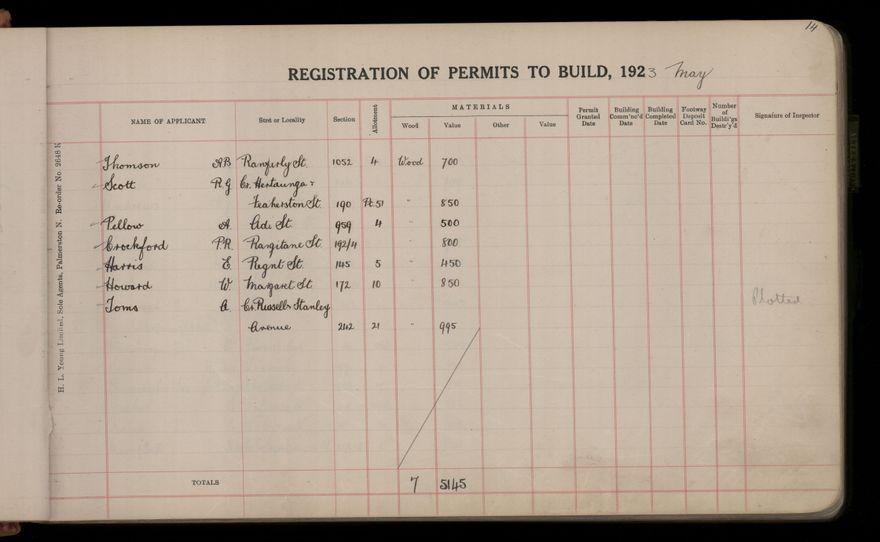 14
REGISTRATION OF PERMITS TO BUILD, 1923 May
NAME OF APPLICANT Street or Locality Section Allotment MATERIALS Wood Value Other Value Permit Granted Date Building Comm'nc'd Date Building Completed Date Footway Deposit Card No. Number of Buildi'gs Destr'y'd Signature of Inspector
Thomson A.B. Rangiora St. 1052 4 Wood 700
Scott R.G. Cr. Heretaunga &
Featherston St. 190 Pt. 51 " 850
Pellow A. Ada St. 959 4 " 500
Crockford P.R. Rangitane St. 192/4 " 800
Harris E. Regnt St. 145 5 " 450
Howard W. Margaret St. 172 10 " 850
Toms A. Cr. Russell & Stanley
Avenue 242 21 " 995
Plotted
TOTALS 7 5145
H. L. Young Limited, Sole Agents, Palmerston N. Re-order No. 2648 K